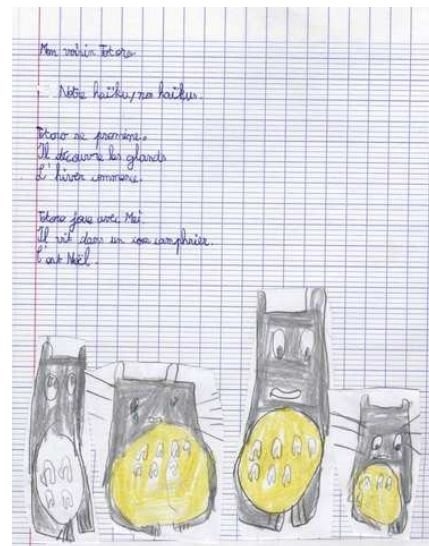 Mon voisin Totoro
Notre haïku, nos haïkus.
Totoro se promène.
Il découvre les glands
L'hiver commence.
Totoro joue avec Mei.
Il vit dans un camphrier.
C'est Noël.